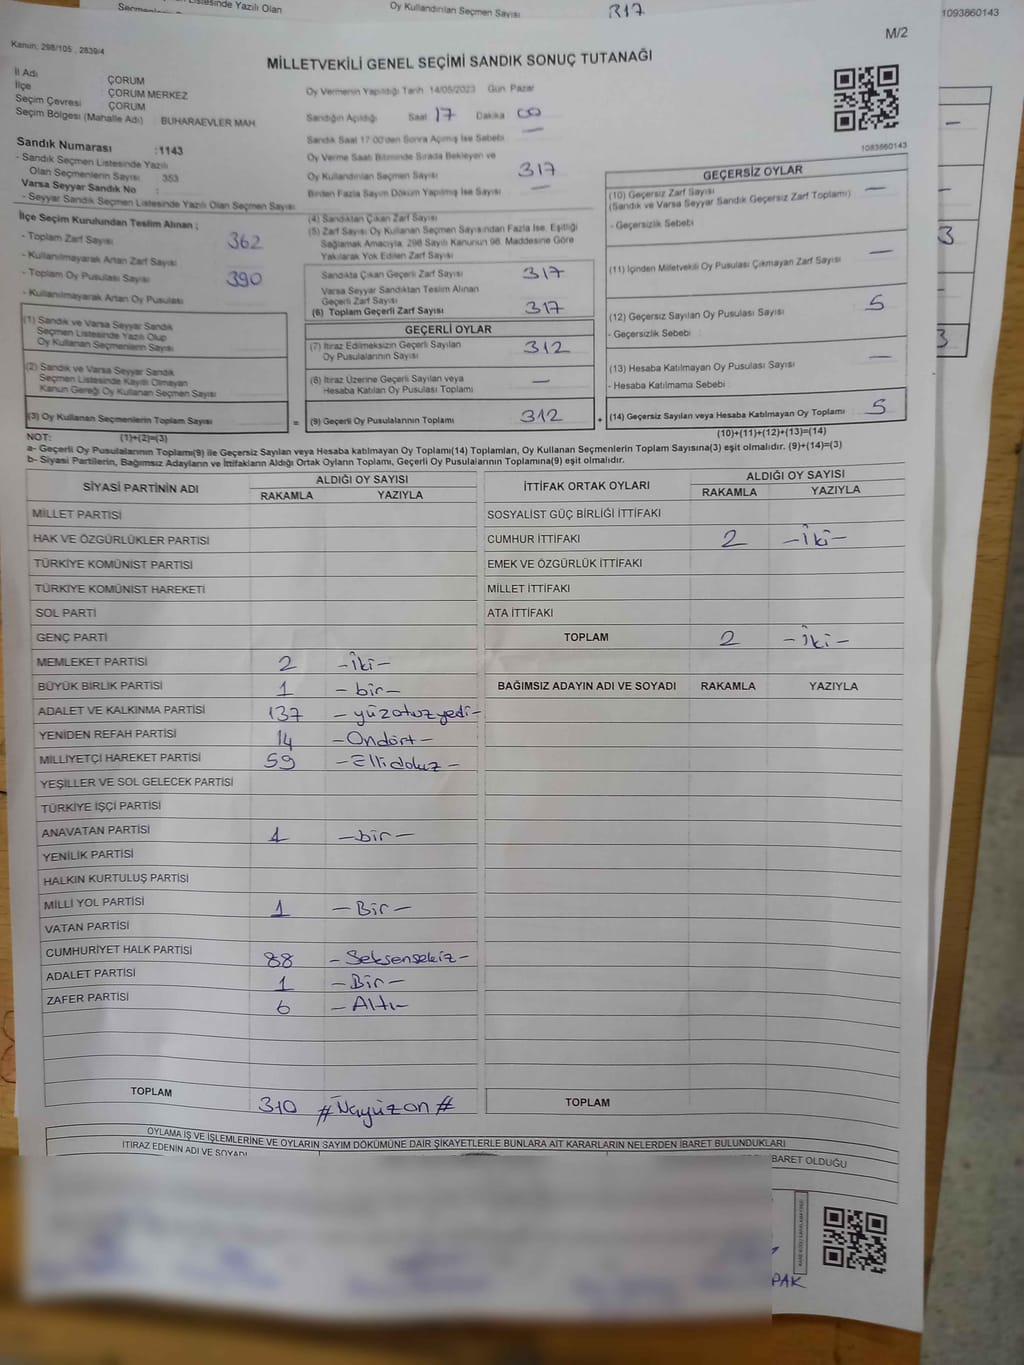 Oy Kullandırılan Seçmen Sayısı 317
1093860143
M/2
Kanun; 298/105 , 2839/4
MİLLETVEKİLİ GENEL SEÇİMİ SANDIK SONUÇ TUTANAĞI
İl Adı : ÇORUM
İlçe : ÇORUM MERKEZ
Seçim Çevresi : ÇORUM
Seçim Bölgesi (Mahalle Adı) : BUHARAEVLER MAH.
Sandık Numarası :1143
- Sandık Seçmen Listesinde Yazılı
Olan Seçmenlerin Sayısı : 353
Varsa Seyyar Sandık No :
- Seyyar Sandık Seçmen Listesinde Yazılı Olan Seçmen Sayısı:
Oy Vermenin Yapıldığı Tarih 14/05/2023 Gün: Pazar
Sandığın Açıldığı Saat 17 Dakika 00
Sandık Saat 17:00'den Sonra Açılmış İse Sebebi —
Oy Verme Saati Bitiminde Sırada Bekleyen ve
Oy Kullandırılan Seçmen Sayısı 317
Birden Fazla Sayım Döküm Yapılmış İse Sayısı —
1093860143
İlçe Seçim Kurulundan Teslim Alınan ;
- Toplam Zarf Sayısı 362
- Kullanılmayarak Artan Zarf Sayısı
- Toplam Oy Pusulası Sayısı 390
- Kullanılmayarak Artan Oy Pusulası
(1) Sandık ve Varsa Seyyar Sandık
Seçmen Listesinde Yazılı Olup
Oy Kullanan Seçmenlerin Sayısı
(2) Sandık ve Varsa Seyyar Sandık
Seçmen Listesinde Kayıtlı Olmayan
Kanun Gereği Oy Kullanan Seçmen Sayısı
(3) Oy Kullanan Seçmenlerin Toplam Sayısı =
(4) Sandıktan Çıkan Zarf Sayısı
(5) Zarf Sayısı Oy Kullanan Seçmen Sayısından Fazla İse, Eşitliği
Sağlamak Amacıyla, 298 Sayılı Kanunun 98. Maddesine Göre
Yakılarak Yok Edilen Zarf Sayısı
Sandıkta Çıkan Geçerli Zarf Sayısı 317
Varsa Seyyar Sandıktan Teslim Alınan
Geçerli Zarf Sayısı
(6) Toplam Geçerli Zarf Sayısı 317
GEÇERLİ OYLAR
(7) İtiraz Edilmeksizin Geçerli Sayılan
Oy Pusulalarının Sayısı 312
(8) İtiraz Üzerine Geçerli Sayılan veya
Hesaba Katılan Oy Pusulası Toplamı —
(9) Geçerli Oy Pusulalarının Toplamı 312 +
GEÇERSİZ OYLAR
(10) Geçersiz Zarf Sayısı —
(Sandık ve Varsa Seyyar Sandık Geçersiz Zarf Toplamı)
- Geçersizlik Sebebi
(11) İçinden Milletvekili Oy Pusulası Çıkmayan Zarf Sayısı —
(12) Geçersiz Sayılan Oy Pusulası Sayısı 5
- Geçersizlik Sebebi :
(13) Hesaba Katılmayan Oy Pusulası Sayısı —
- Hesaba Katılmama Sebebi :
(14) Geçersiz Sayılan veya Hesaba Katılmayan Oy Toplamı 5
NOT: (1)+(2)=(3) (10)+(11)+(12)+(13)=(14)
a- Geçerli Oy Pusulalarının Toplamı(9) ile Geçersiz Sayılan veya Hesaba katılmayan Oy Toplamı(14) Toplamları, Oy Kullanan Seçmenlerin Toplam Sayısına(3) eşit olmalıdır. (9)+(14)=(3)
b- Siyasi Partilerin, Bağımsız Adayların ve İttifakların Aldığı Ortak Oyların Toplamı, Geçerli Oy Pusulalarının Toplamına(9) eşit olmalıdır.
SİYASİ PARTİNİN ADI ALDIĞI OY SAYISI
RAKAMLA YAZIYLA
MİLLET PARTİSİ
HAK VE ÖZGÜRLÜKLER PARTİSİ
TÜRKİYE KOMÜNİST PARTİSİ
TÜRKİYE KOMÜNİST HAREKETİ
SOL PARTİ
GENÇ PARTİ
MEMLEKET PARTİSİ 2 -İki-
BÜYÜK BİRLİK PARTİSİ 1 -bir-
ADALET VE KALKINMA PARTİSİ 137 -yüzotuzyedi-
YENİDEN REFAH PARTİSİ 14 -Ondört-
MİLLİYETÇİ HAREKET PARTİSİ 59 -Ellidokuz-
YEŞİLLER VE SOL GELECEK PARTİSİ
TÜRKİYE İŞÇİ PARTİSİ
ANAVATAN PARTİSİ 1 -bir-
YENİLİK PARTİSİ
HALKIN KURTULUŞ PARTİSİ
MİLLİ YOL PARTİSİ 1 -Bir-
VATAN PARTİSİ
CUMHURİYET HALK PARTİSİ 88 -Seksensekiz-
ADALET PARTİSİ 1 -Bir-
ZAFER PARTİSİ 6 -Altı-
TOPLAM 310 #Üçyüzon#
İTTİFAK ORTAK OYLARI ALDIĞI OY SAYISI
RAKAMLA YAZIYLA
SOSYALİST GÜÇ BİRLİĞİ İTTİFAKI
CUMHUR İTTİFAKI 2 -İki-
EMEK VE ÖZGÜRLÜK İTTİFAKI
MİLLET İTTİFAKI
ATA İTTİFAKI
TOPLAM 2 -İki-
BAĞIMSIZ ADAYIN ADI VE SOYADI RAKAMLA YAZIYLA
TOPLAM
OYLAMA İŞ VE İŞLEMLERİNE VE OYLARIN SAYIM DÖKÜMÜNE DAİR ŞİKAYETLERLE BUNLARA AİT KARARLARIN NELERDEN İBARET BULUNDUKLARI
İTİRAZ EDENİN ADI VE SOYADI
BARET OLDUĞU
PAK